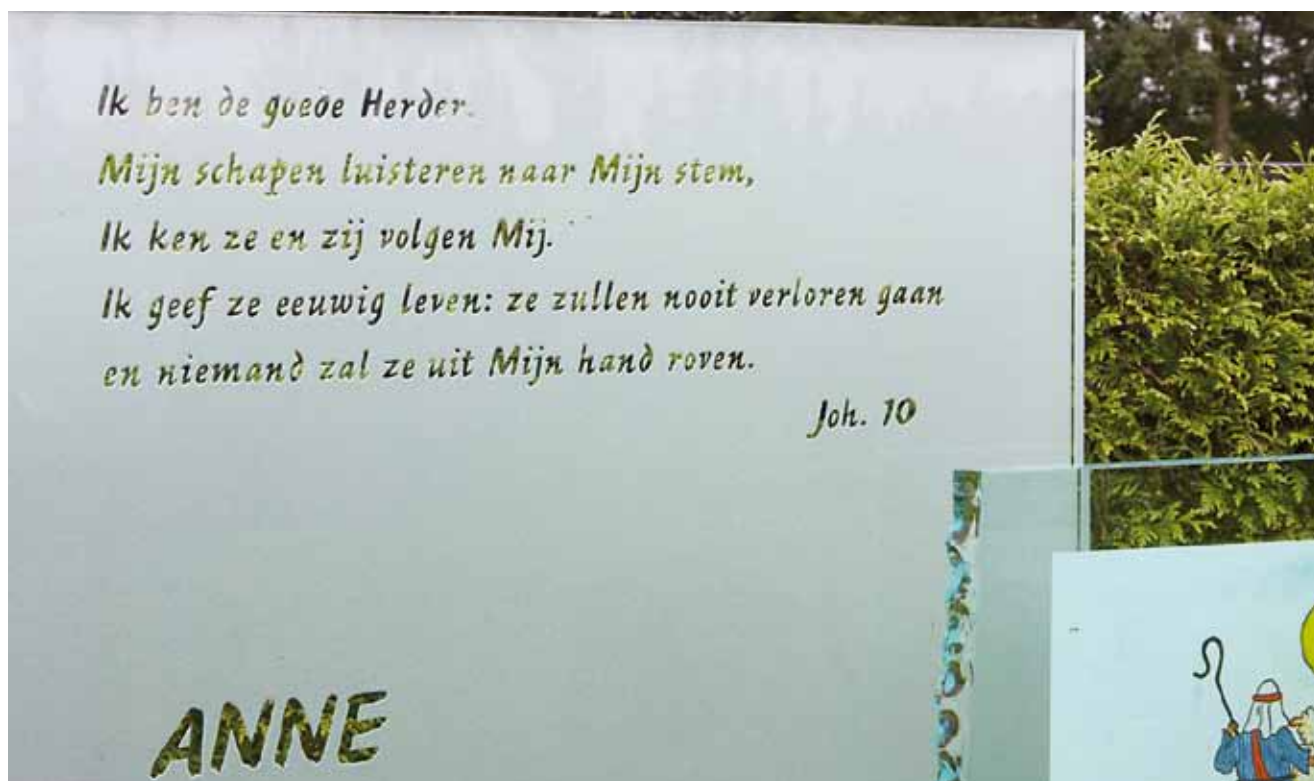 Ik ben de goede Herder.
Mijn schapen luisteren naar Mijn stem,
Ik ken ze en zij volgen Mij.
Ik geef ze eeuwig leven: ze zullen nooit verloren gaan
en niemand zal ze uit Mijn hand roven.
Joh. 10
ANNE